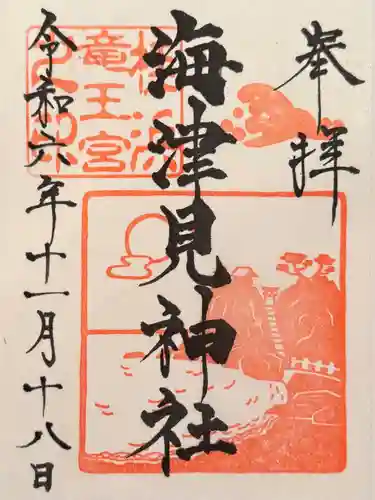 奉拝
海津見神社
桂浜
竜王宮
令和六年十一月十八日